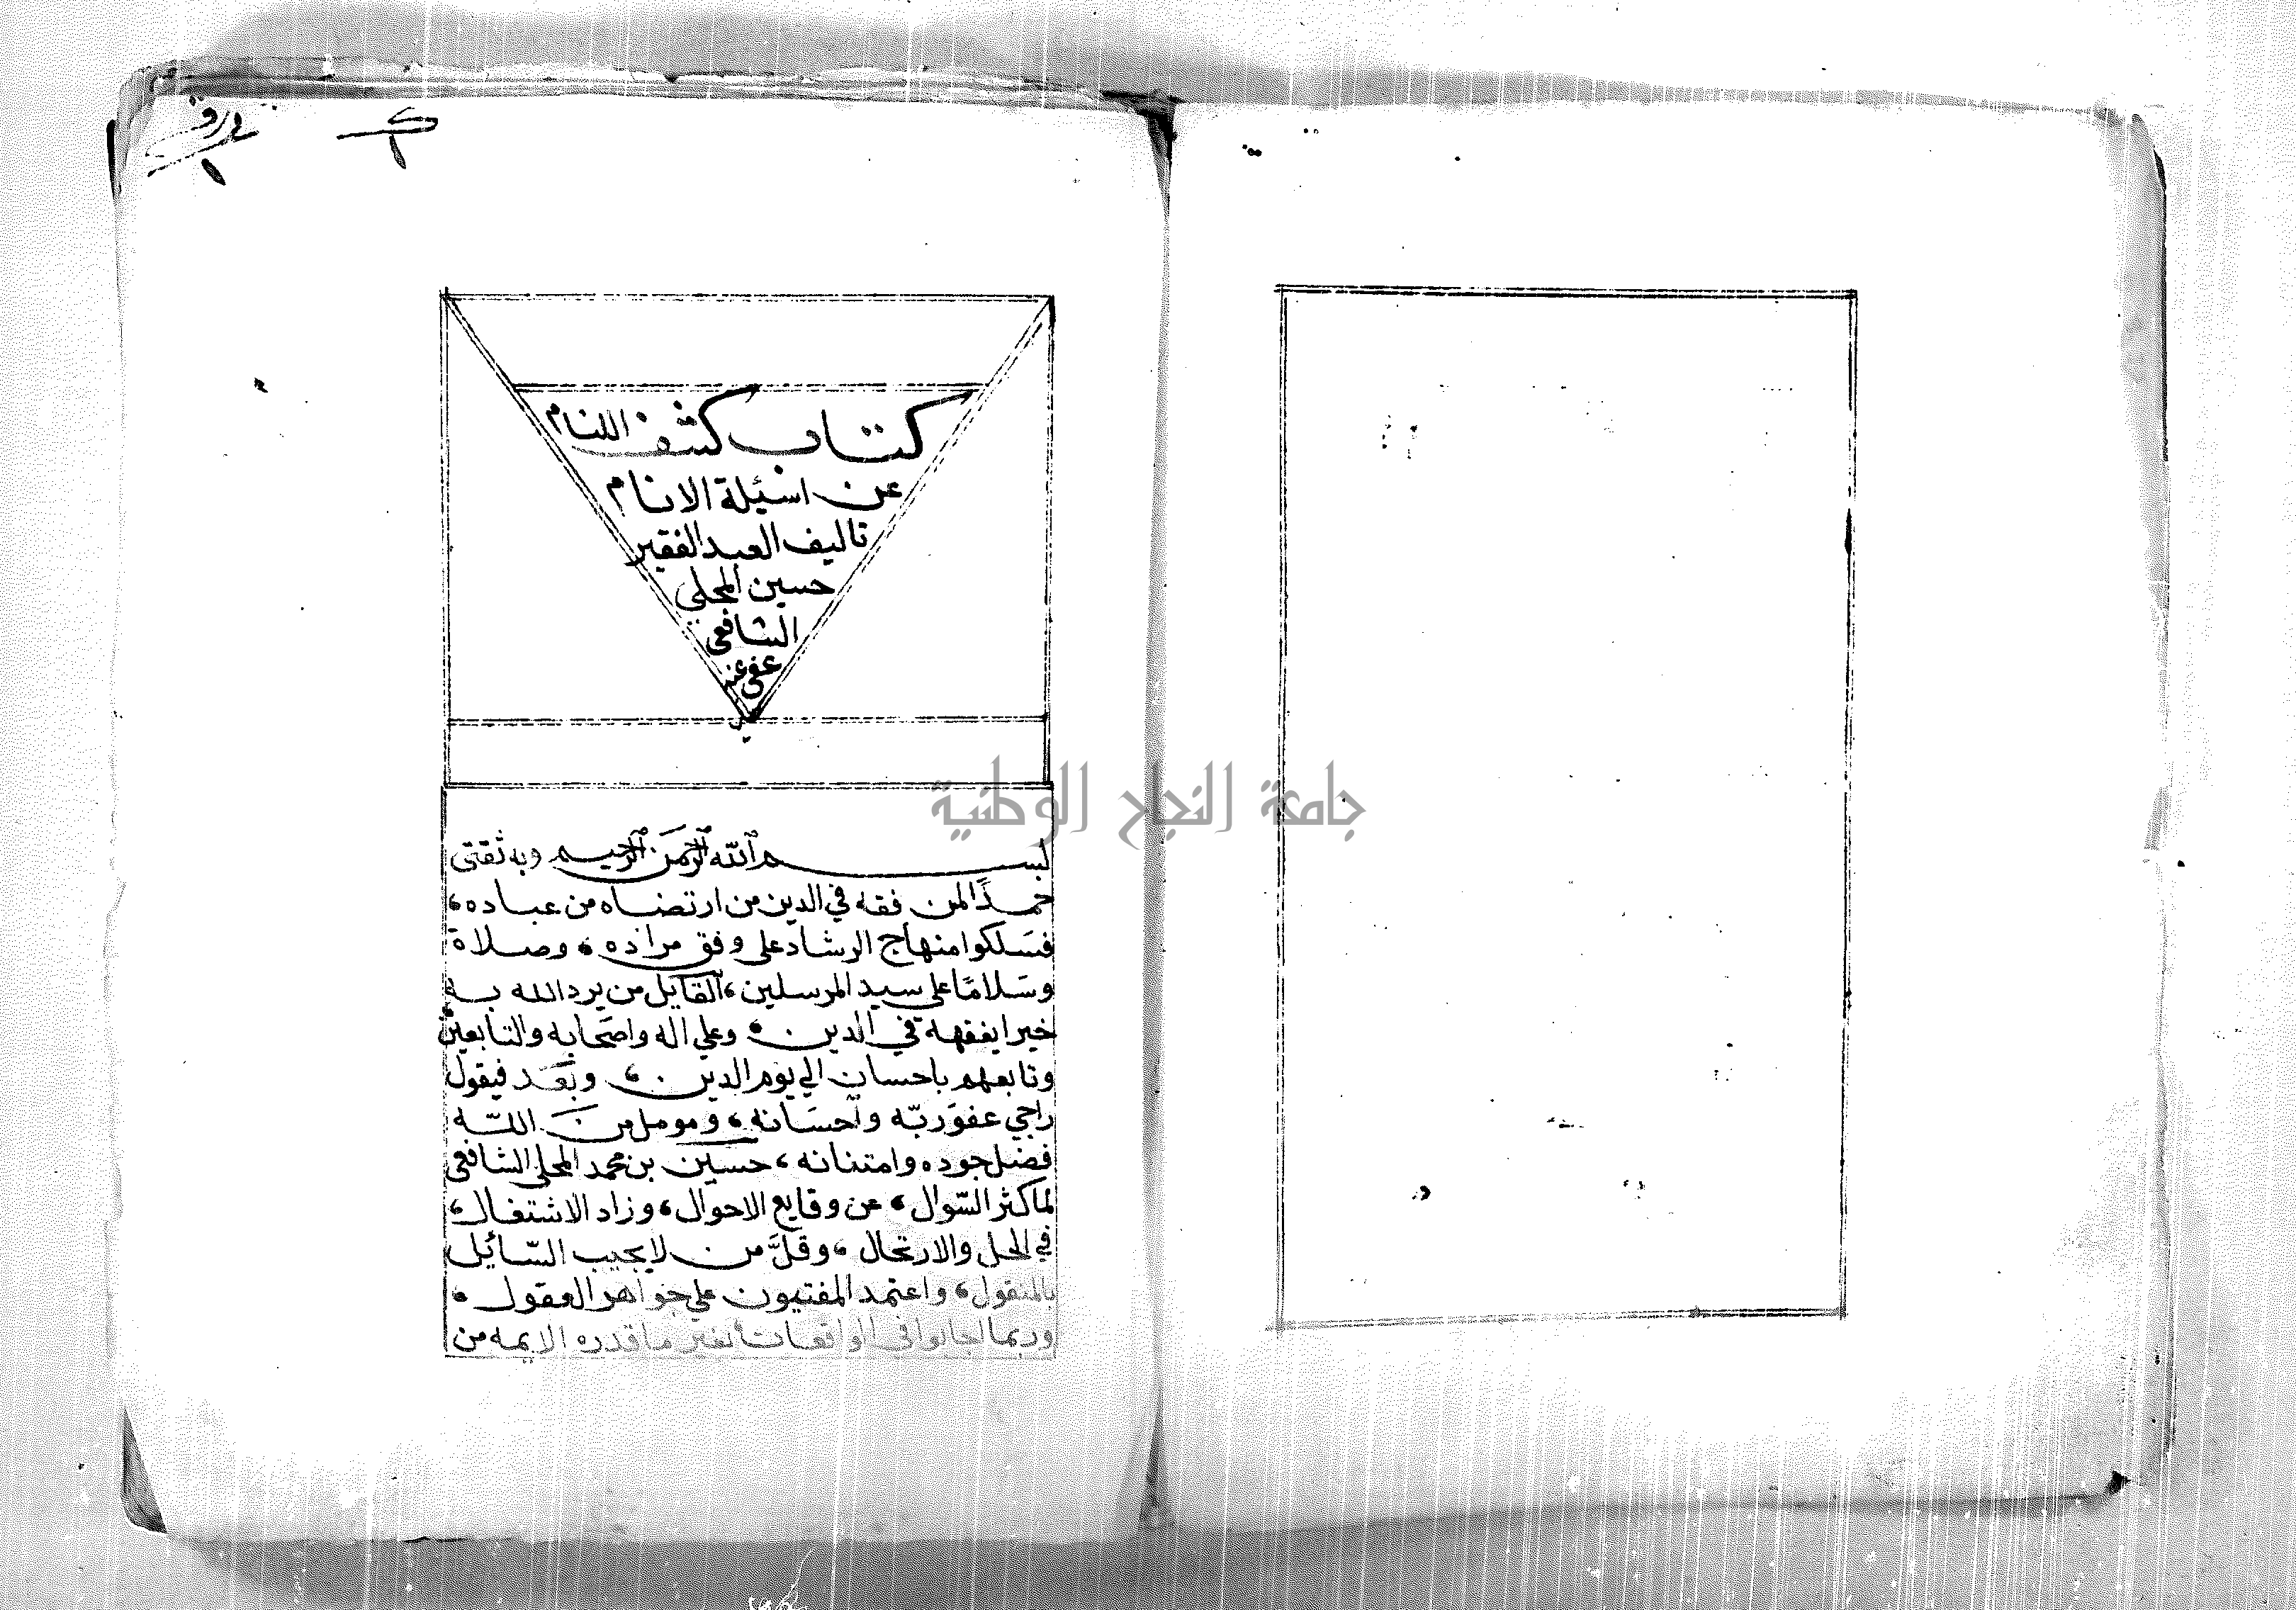 ورق
١
ك
١
كتاب كشف اللثام
عن اسئلة الانام
تاليف العبد الفقير
حسين المحلي
الشافعي
عفي عنه
جامعة النجاح الوطنية
بسم الله الرحمن الرحيم وبه ثقتى
حمدًا لمن فقه في الدين من ارتضاه من عباده،
فسلكوا منهاج الرشاد على وفق مراده، وصلاة
وسلامًا على سيد المرسلين، القايل من يرد الله به
خيرا يفقهه في الدين، وعلي اله واصحابه والتابعين
وتابعهم باحسان الي يوم الدين، وبعد فيقول
راجي عفو ربّه واحسانه، ومومل من اللّه
فضل جوده وامتنانه، حسين بن محمد المحلي الشافعي
لما كثر السّوال، عن وقايع الاحوال، وزاد الاشتغال،
في الحل والارتحال، وقلَّ من لا يجيب السّائيل
بالمنقول، واعتمد المفتيون علي جواهر العقول،
وربما اجابوا في الواقعات بغير ما قدره الايمه من